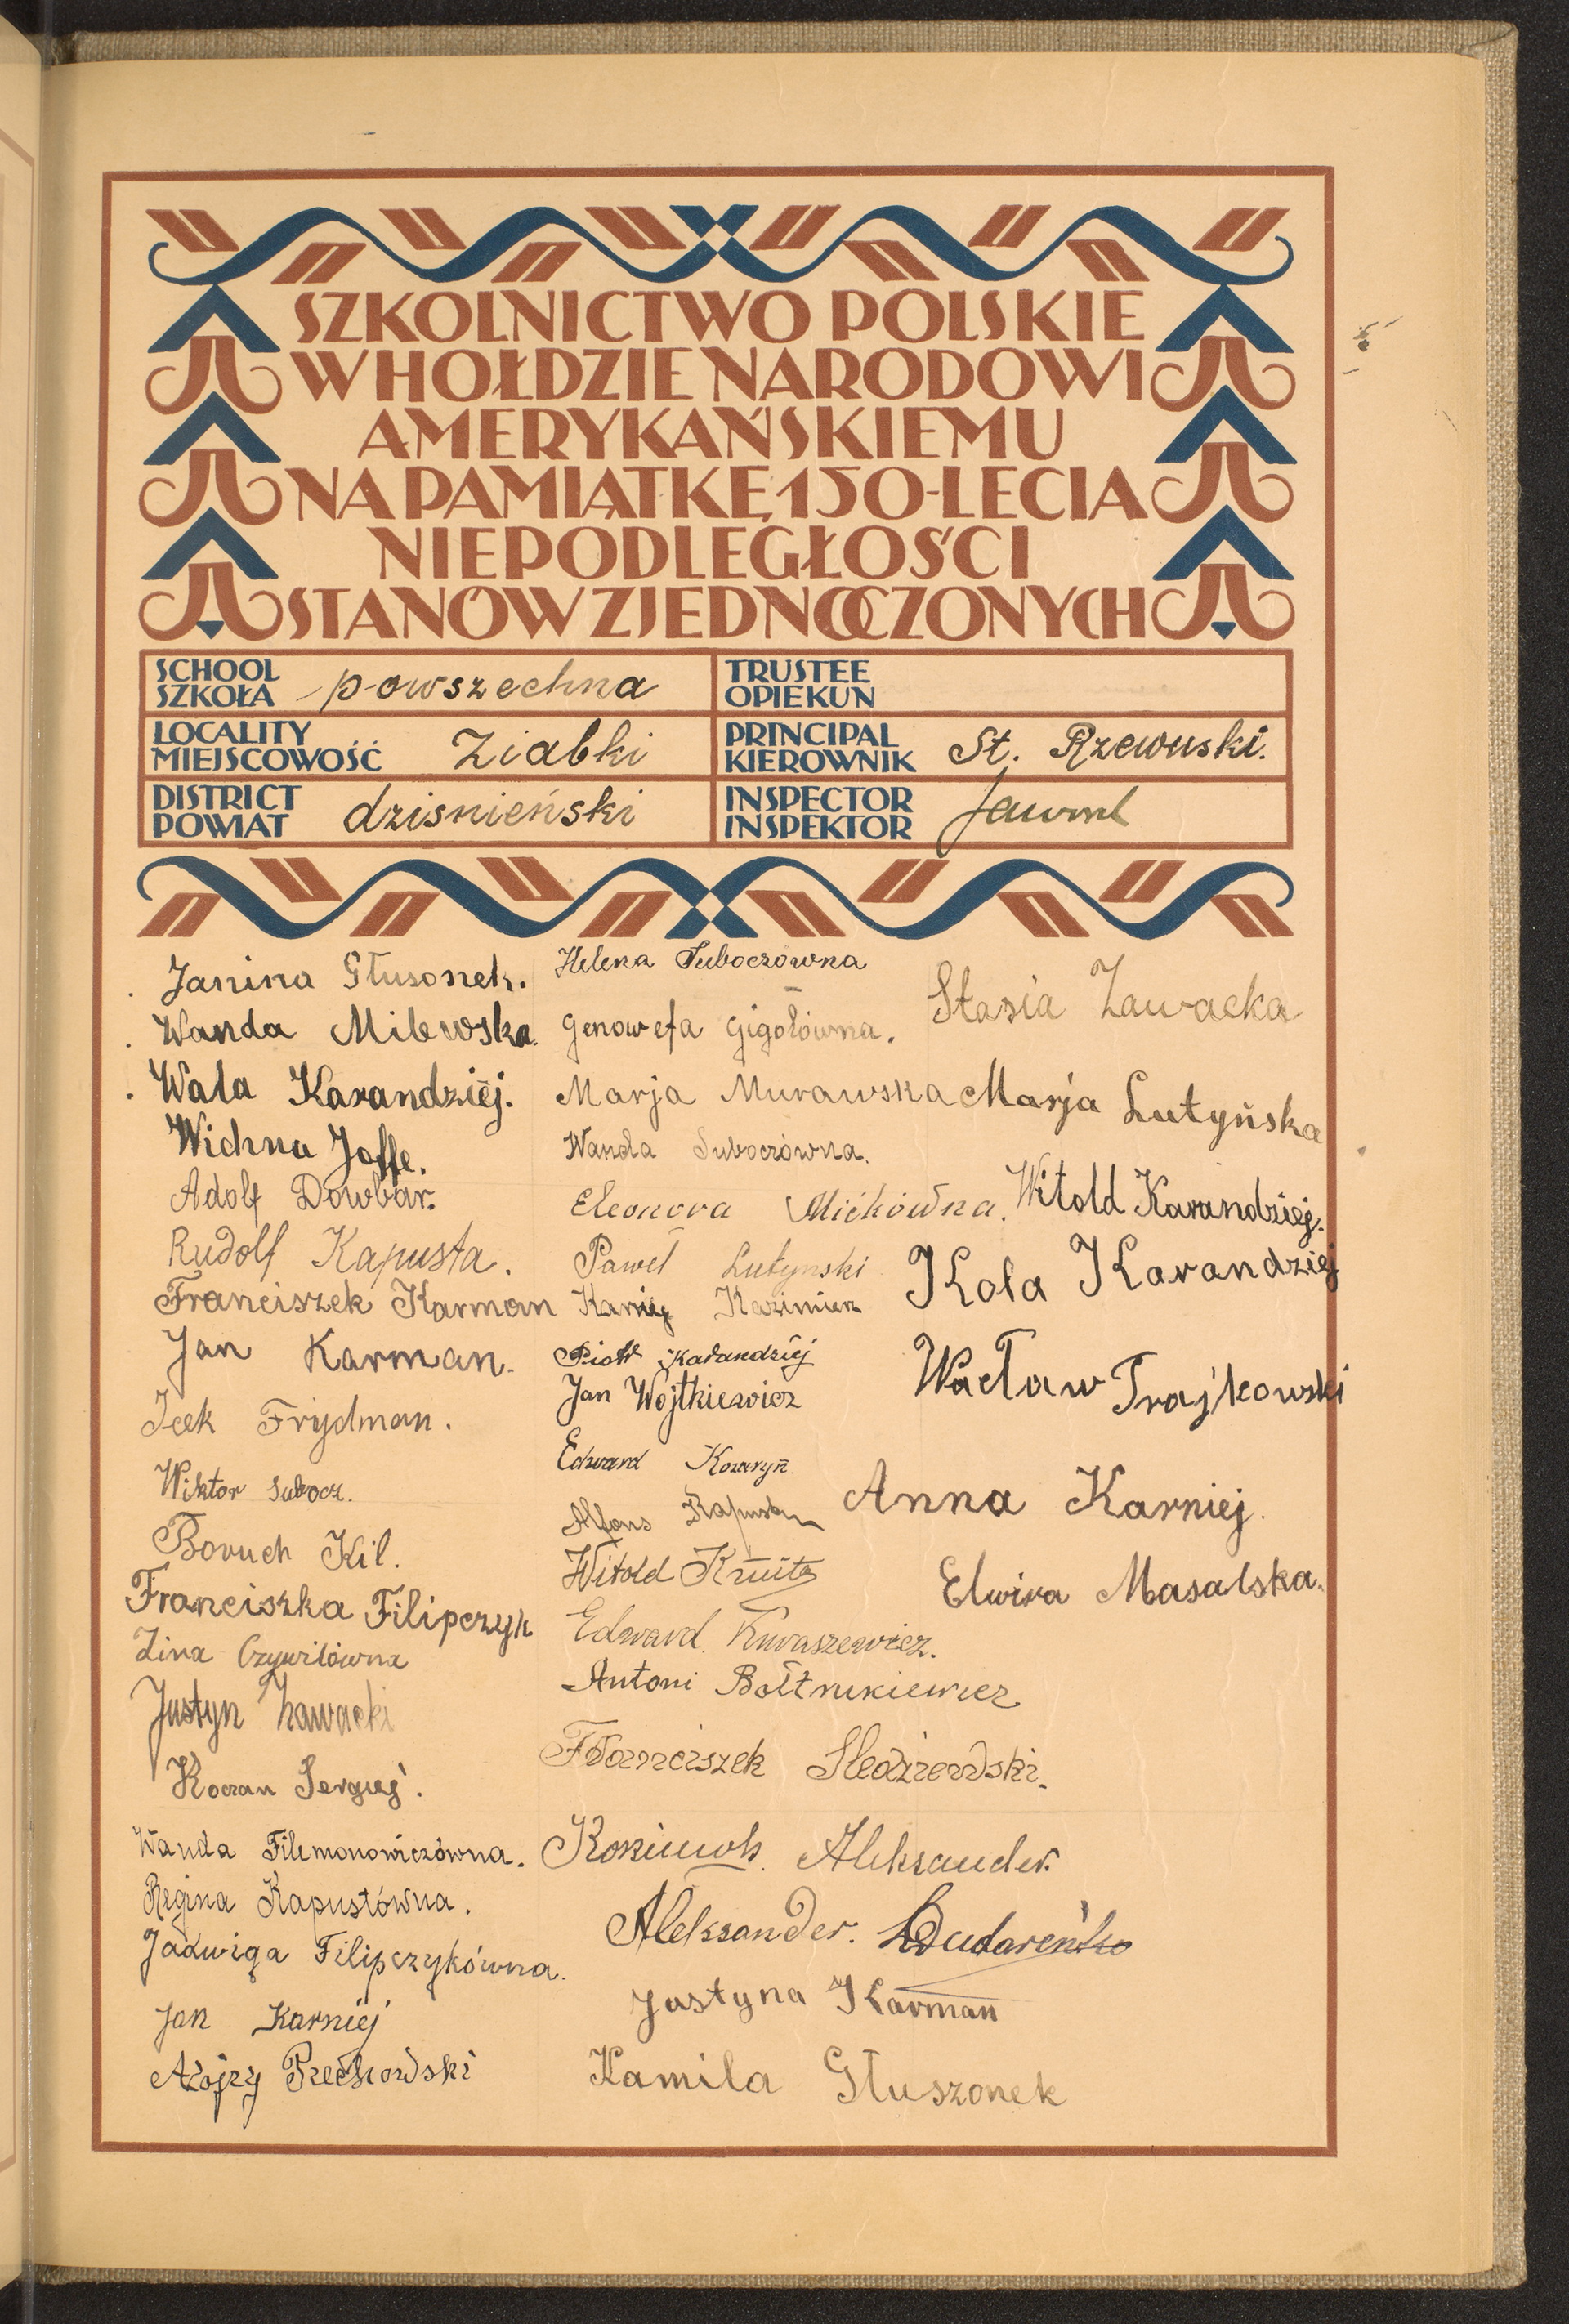 SZKOLNICTWO POLSKIE
W HOŁDZIE NARODOWI
AMERYKAŃSKIEMU
NA PAMIĄTKĘ 150-LECIA
NIEPODLEGŁOŚCI
STANÓW ZJEDNOCZONYCH
SCHOOL
SZKOŁA powszechna
TRUSTEE
OPIEKUN
LOCALITY
MIEJSCOWOŚĆ Ziabki
PRINCIPAL
KIEROWNIK St. Rzewuski.
DISTRICT
POWIAT dzisnieński
INSPECTOR
INSPEKTOR
Janina Głusonek.
Wanda Milewska.
Wala Karandziej.
Wichna Joffe.
Adolf Dowbar.
Rudolf Kapusta.
Franciszek Karman
Jan Karman.
Icek Frydman.
Wiktor Subocz.
Boruch Kil.
Franciszka Filipczyk
Zina Czywilówna
Justyn Zawacki
Koczan Sergiej.
Wanda Filemonowiczówna.
Regina Kapustówna.
Jadwiga Filipczykówna.
Jan Karniej
Alojzy
Helena Suboczówna
Genowefa Gigołówna.
Marja Murawska
Wanda Suboczówna.
Eleonora Mićkówna.
Paweł Lutynski
Karniej Kazimierz
Piotr Karandziej
Jan Wojtkiewicz
Edward
Alfons Kapusta
Witold
Edward Kuraszewicz.
Antoni
Franciszek Sledziewski.
Aleksander.
Aleksander. Dudareńko
Justyna Karman
Kamila Głuszonek
Stasia Zawacka
Marja Lutyńska
Witold Karandziej.
Kola Karandziej
Wacław Trajkowski
Anna Karniej.
Elwira Masalska.